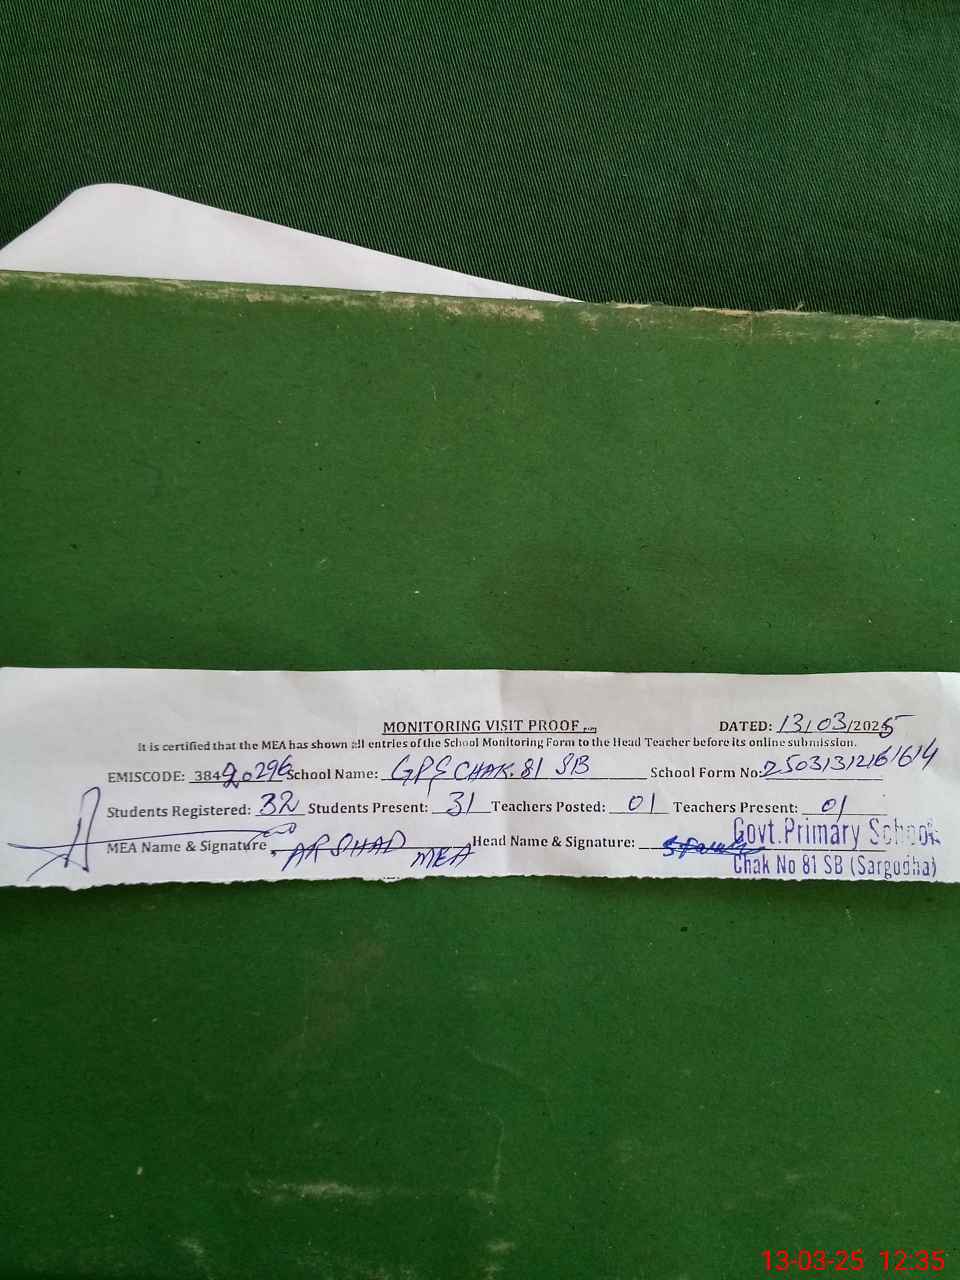 MONITORING VISIT PROOF
DATED: 13/03/2025
It is certified that the MEA has shown all entries of the School Monitoring Form to the Head Teacher before its online submission.
EMISCODE: 38420296 School Name: GPS CHAK. 81 SB School Form No: 25031312161614
Students Registered: 32 Students Present: 31 Teachers Posted: 01 Teachers Present: 01
MEA Name & Signature ARSHAD MEA Head Name & Signature:
Govt. Primary School
Chak No 81 SB (Sargodha)
13-03-25 12:35